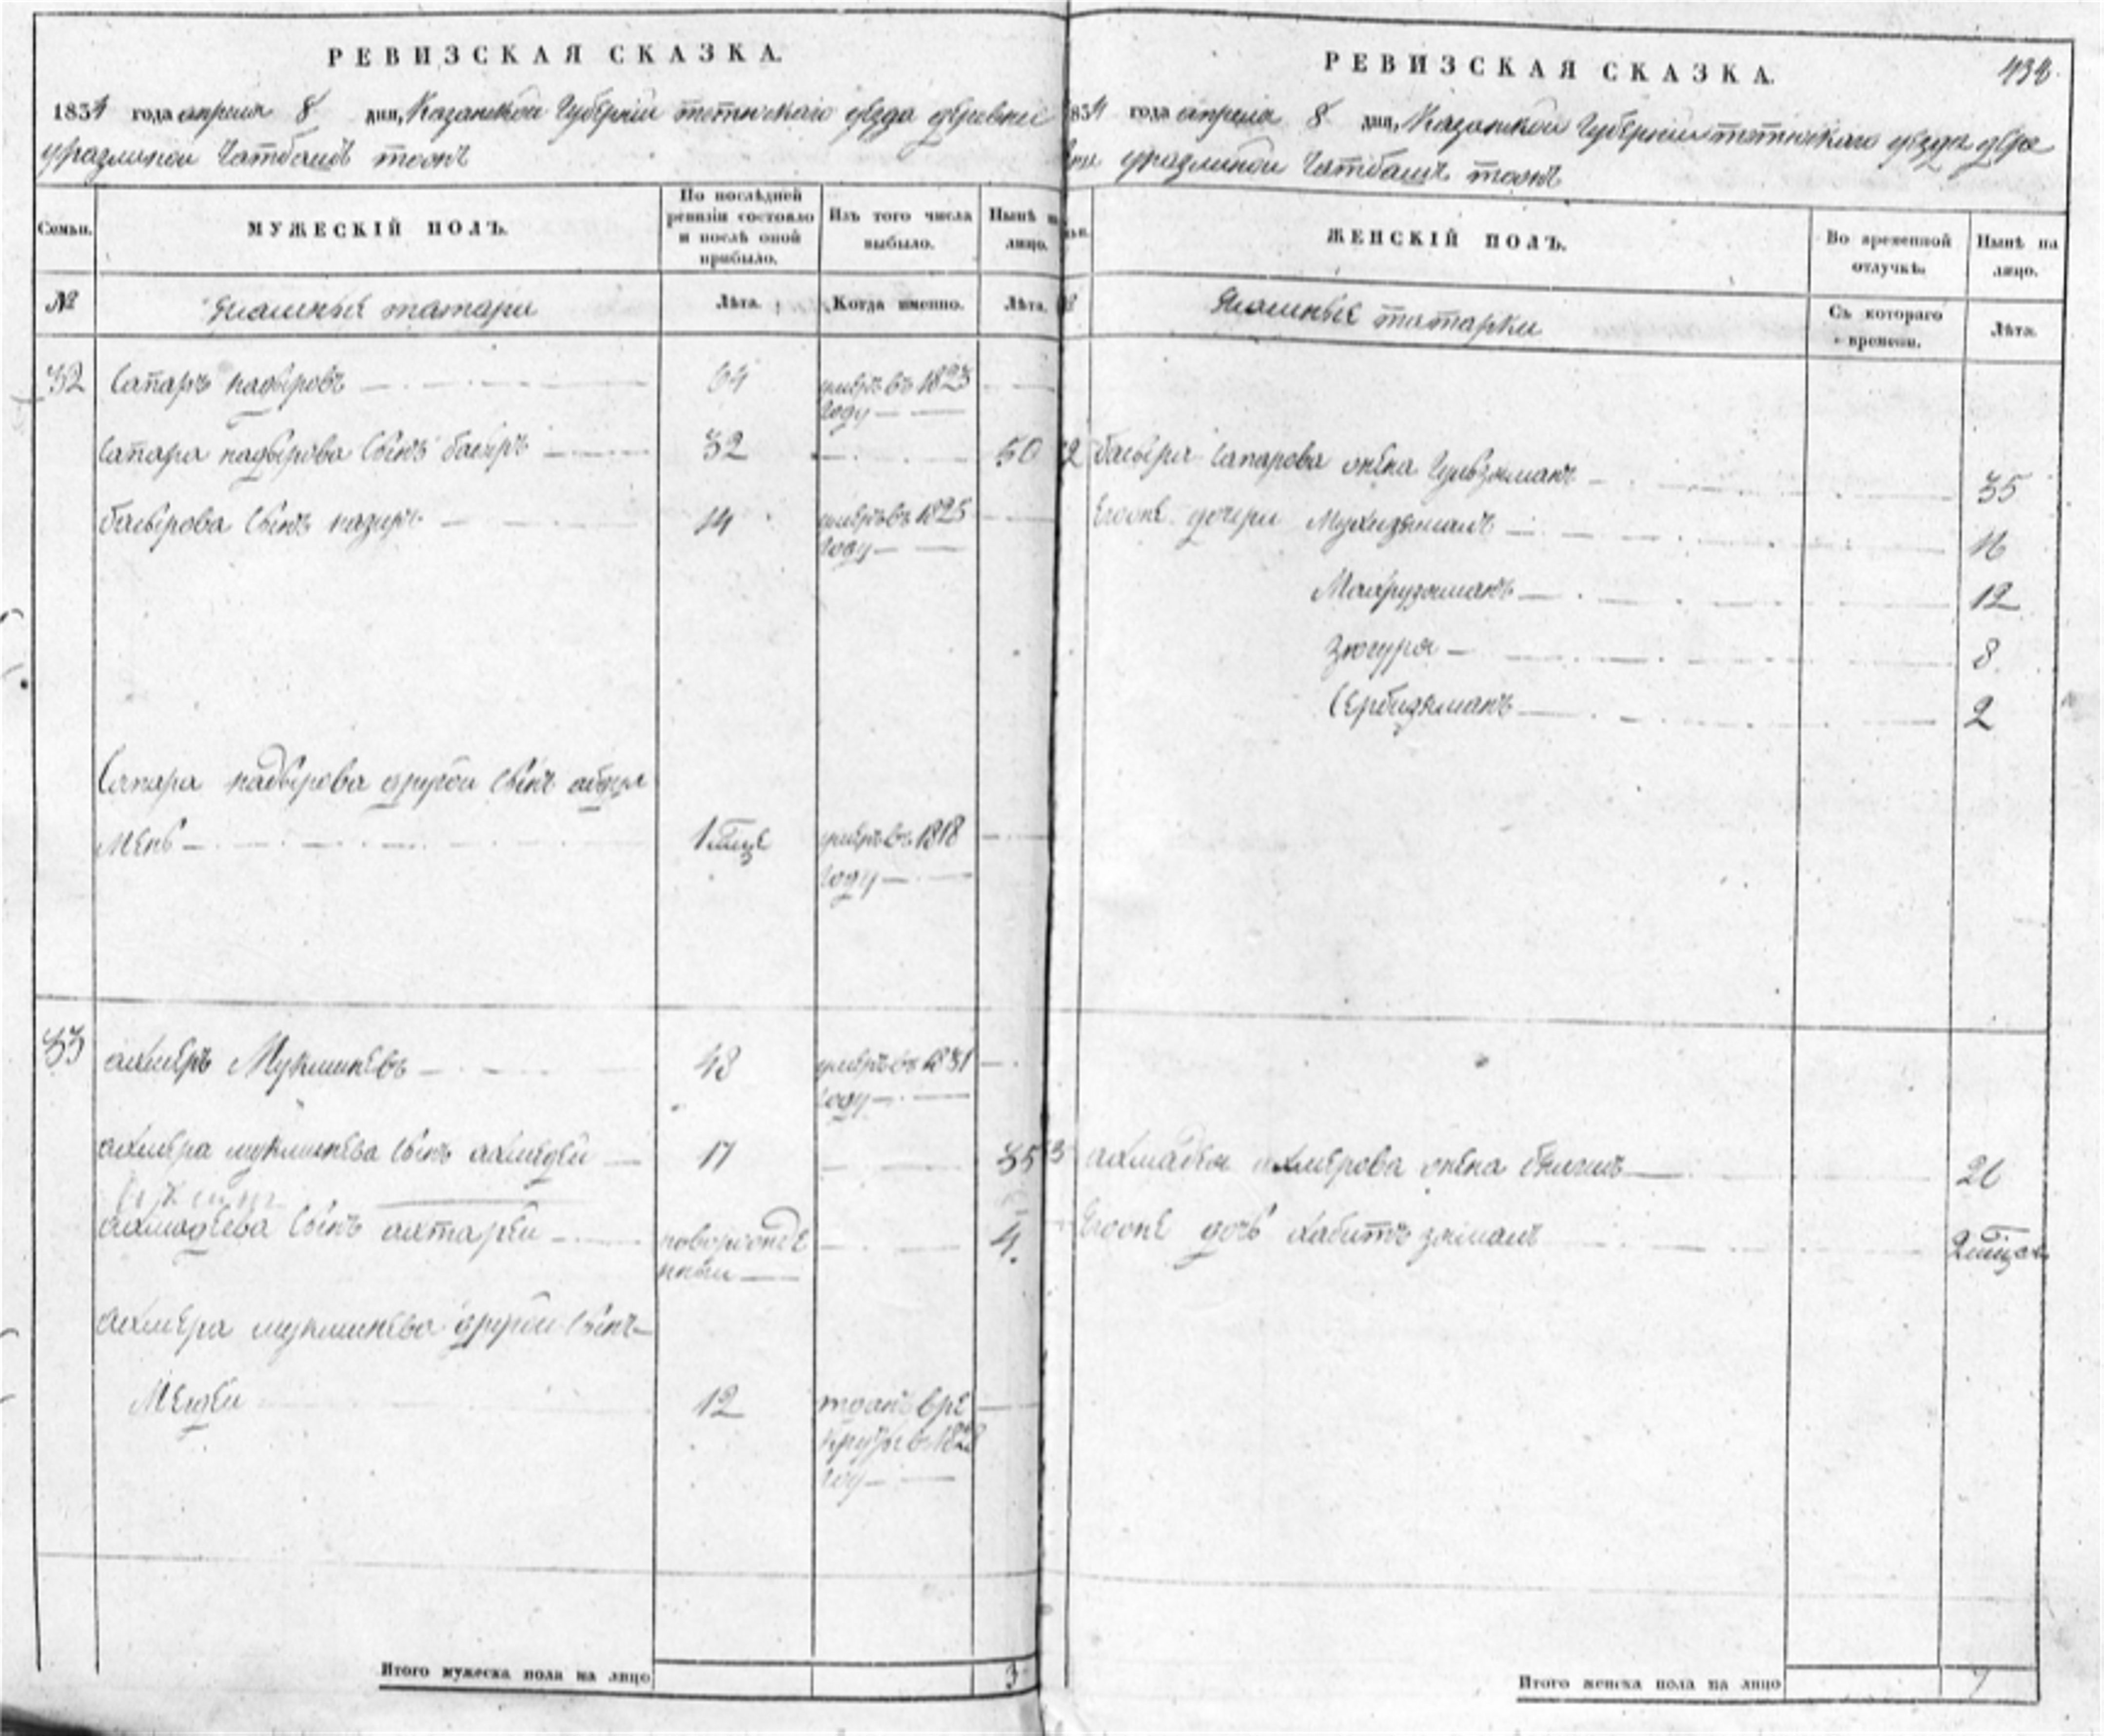 РЕВИЗСКАЯ СКАЗКА.
1834 года апреля 8 дня, Казанской Губернии тетюшскаго уезда деревни
уразлиной Чатбашъ тоожъ
Семьи.
МУЖЕСКІЙ ПОЛЪ.
По послѣдней
ревизіи состояло
и послѣ оной
прибыло.
Изъ того числа
выбыло.
Нынѣ на
лицо.
№
Ясашныя татары
Лѣта.
Когда именно.
Лѣта.
32 Сапаръ надыровъ 64 умеръ въ 1823
году
Сапара надырова сынъ басыръ 32 50
басырова сынъ назиръ 14 умеръ въ 1825
году
Сапара надырова другой сынъ абдул
мень 1 умеръ въ 1818
году
33 ахмеръ Мукминевъ 48 умеръ въ 1831
году
ахмера мукминева сынъ ахмедей 17 35
ахмадеева сынъ ахтарей новорожде 4.
нный
ахмера мукминева другой сынъ
Мердеи 12 тданъ вре
круты в 1828
году
Итого мужеска пола на лицо 3
РЕВИЗСКАЯ СКАЗКА.
434
1834 года апреля 8 дня, Казанской Губернии тетюшскаго уезда дере
вни уразлиной Чатбашъ тоожъ
ЖЕНСКІЙ ПОЛЪ.
Во временной
отлучкѣ.
Нынѣ на
лицо.
Ясашныя татарки
Съ котораго
времени.
Лѣта.
32 басыра сапарова жена Гульзяманъ 35
Егоже дочери 16
12
Зюгура 8
Сербизяманъ 2
33 ахмадея ахмерова жена 26
Егоже дочь хабитъ зяманъ
Итого женска пола на лицо 7